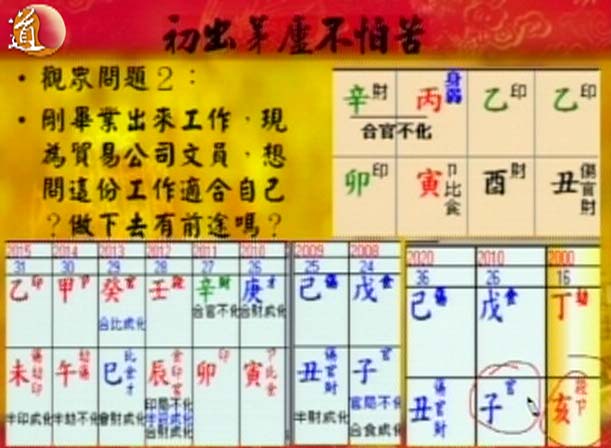 道
初出茅廬不怕苦
• 觀眾問題2：
• 剛畢業出來工作，現
為貿易公司文員，想
問這份工作適合自己
？做下去有前途嗎？
辛財 丙身弱 乙印 乙印
合官不化
卯印 寅卩比食 酉財 丑傷官財
2015 2014 2013 2012 2011 2010
31 30 29 28 27 26
乙印 甲卩 癸官 壬 辛財 庚才
合比成化 合官不化 合財成化
未傷劫印 午劫傷 巳比食才 辰食印官 卯印 寅卩比食
半印成化 半劫不化 會財成化 印局不化
合財成化
2009 2008
25 24
己傷 戊食
丑傷官財 子官
半財成化 官局不化
合食不化
2020 2010 2000
36 26 16
己傷 戊食 丁劫
丑傷官財 子官 亥